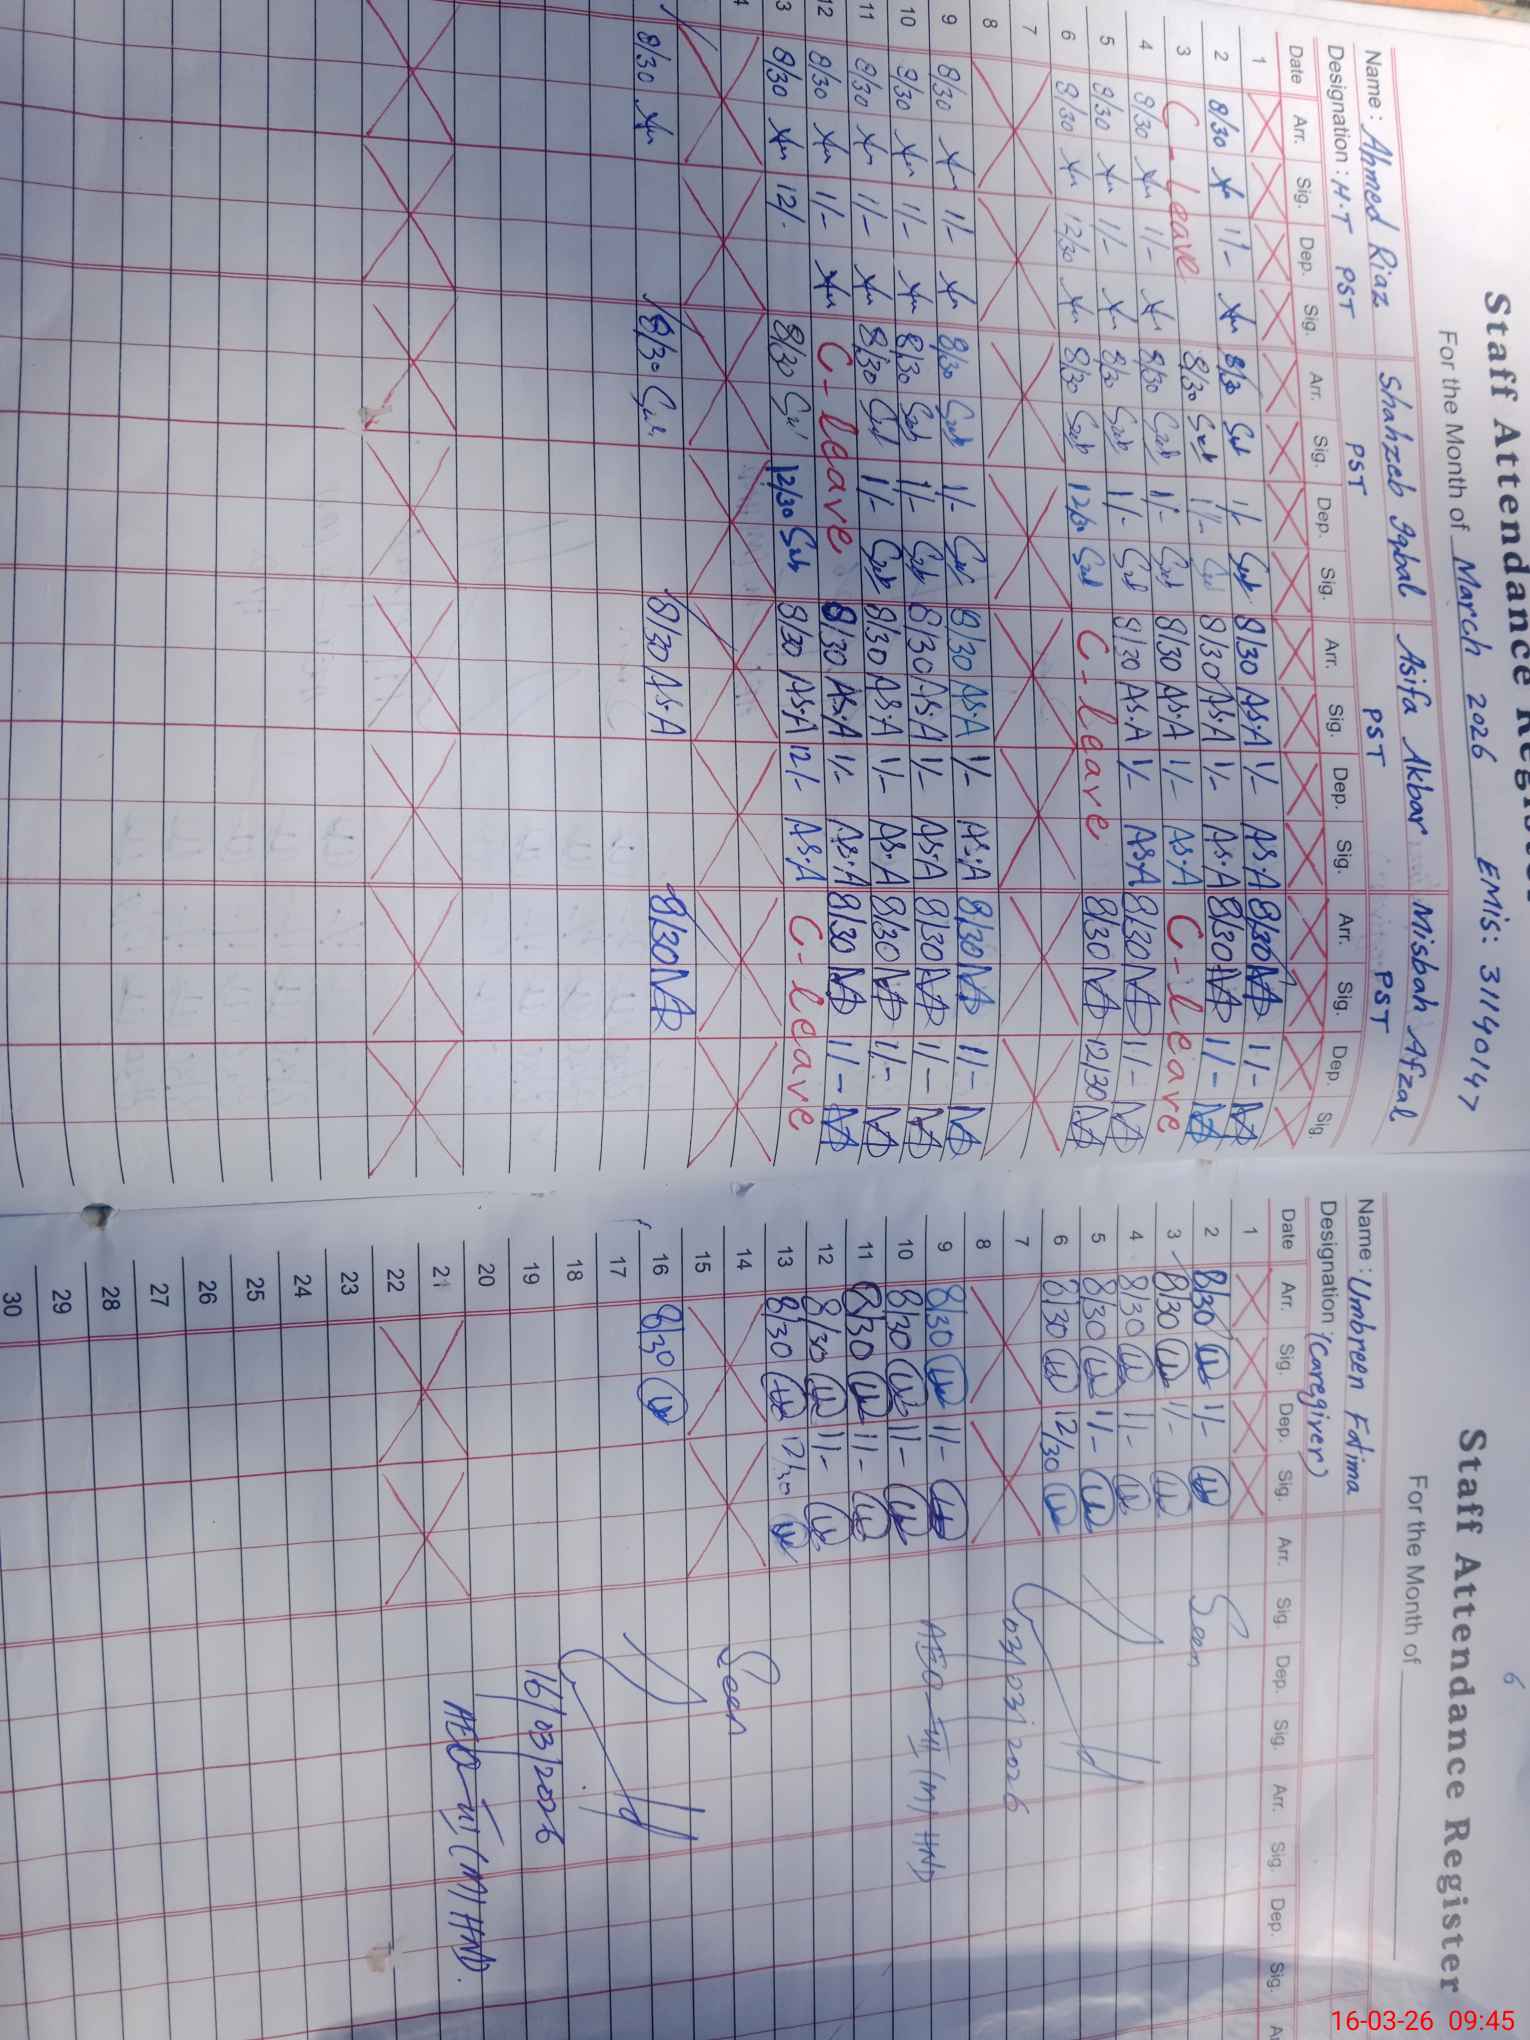 Staff Attendance Register
For the Month of March 2026 EMIS: 31140147
Name: Ahmed Riaz Shahzeb Iqbal Asifa Akbar Misbah Afzal
Designation: H.T PST PST PST PST
Date Arr. Sig. Dep. Sig. Arr. Sig. Dep. Sig. Arr. Sig. Dep. Sig. Arr. Sig. Dep. Sig.
1
2 8/30 1/- 8/30 1/- 8/30 AS.A 1/- AS.A 8/30 1/-
3 C-leave 8/30 1/- 8/30 AS.A 1/- AS.A 8/30 1/-
4 8/30 1/- 8/30 1/- 8/30 AS.A 1/- AS.A C-leave
5 8/30 1/- 8/30 1/- 8/30 AS.A 1/- AS.A 8/30 1/-
6 8/30 12/30 8/30 12/30 C-leave 8/30 12/30
7
8
9 8/30 1/- 8/30 1/- 8/30 AS.A 1/- AS.A 8/30 1/-
10 8/30 1/- 8/30 1/- 8/30 AS.A 1/- AS.A 8/30 1/-
11 8/30 1/- 8/30 1/- 8/30 AS.A 1/- AS.A 8/30 1/-
12 8/30 1/- C-leave 8/30 AS.A 1/- AS.A 8/30 1/-
3 8/30 12/- 8/30 12/30 8/30 AS.A 12/- AS.A C-leave
8/30 8/30 8/30 AS.A 8/30
6
Staff Attendance Register
For the Month of
Name: Umbreen Fatima
Designation: (Caregiver)
Date Arr. Sig. Dep. Sig. Arr. Sig. Dep. Sig. Arr. Sig. Dep. Sig.
1
2 8/30 1/- Seen
3 8/30 1/-
4 8/30 1/-
5 8/30 1/-
6 8/30 12/30
7 03/03/2026
8
9 8/30 1/- AEO-III (M) HND
10 8/30 1/-
11 8/30 1/-
12 8/30 1/-
13 8/30 12/30
14 Seen
15
16 8/30
17
18
19 16/03/2026
20
21 AEO-III (M) HND.
22
23
24
25
26
27
28
29
30
16-03-26 09:45